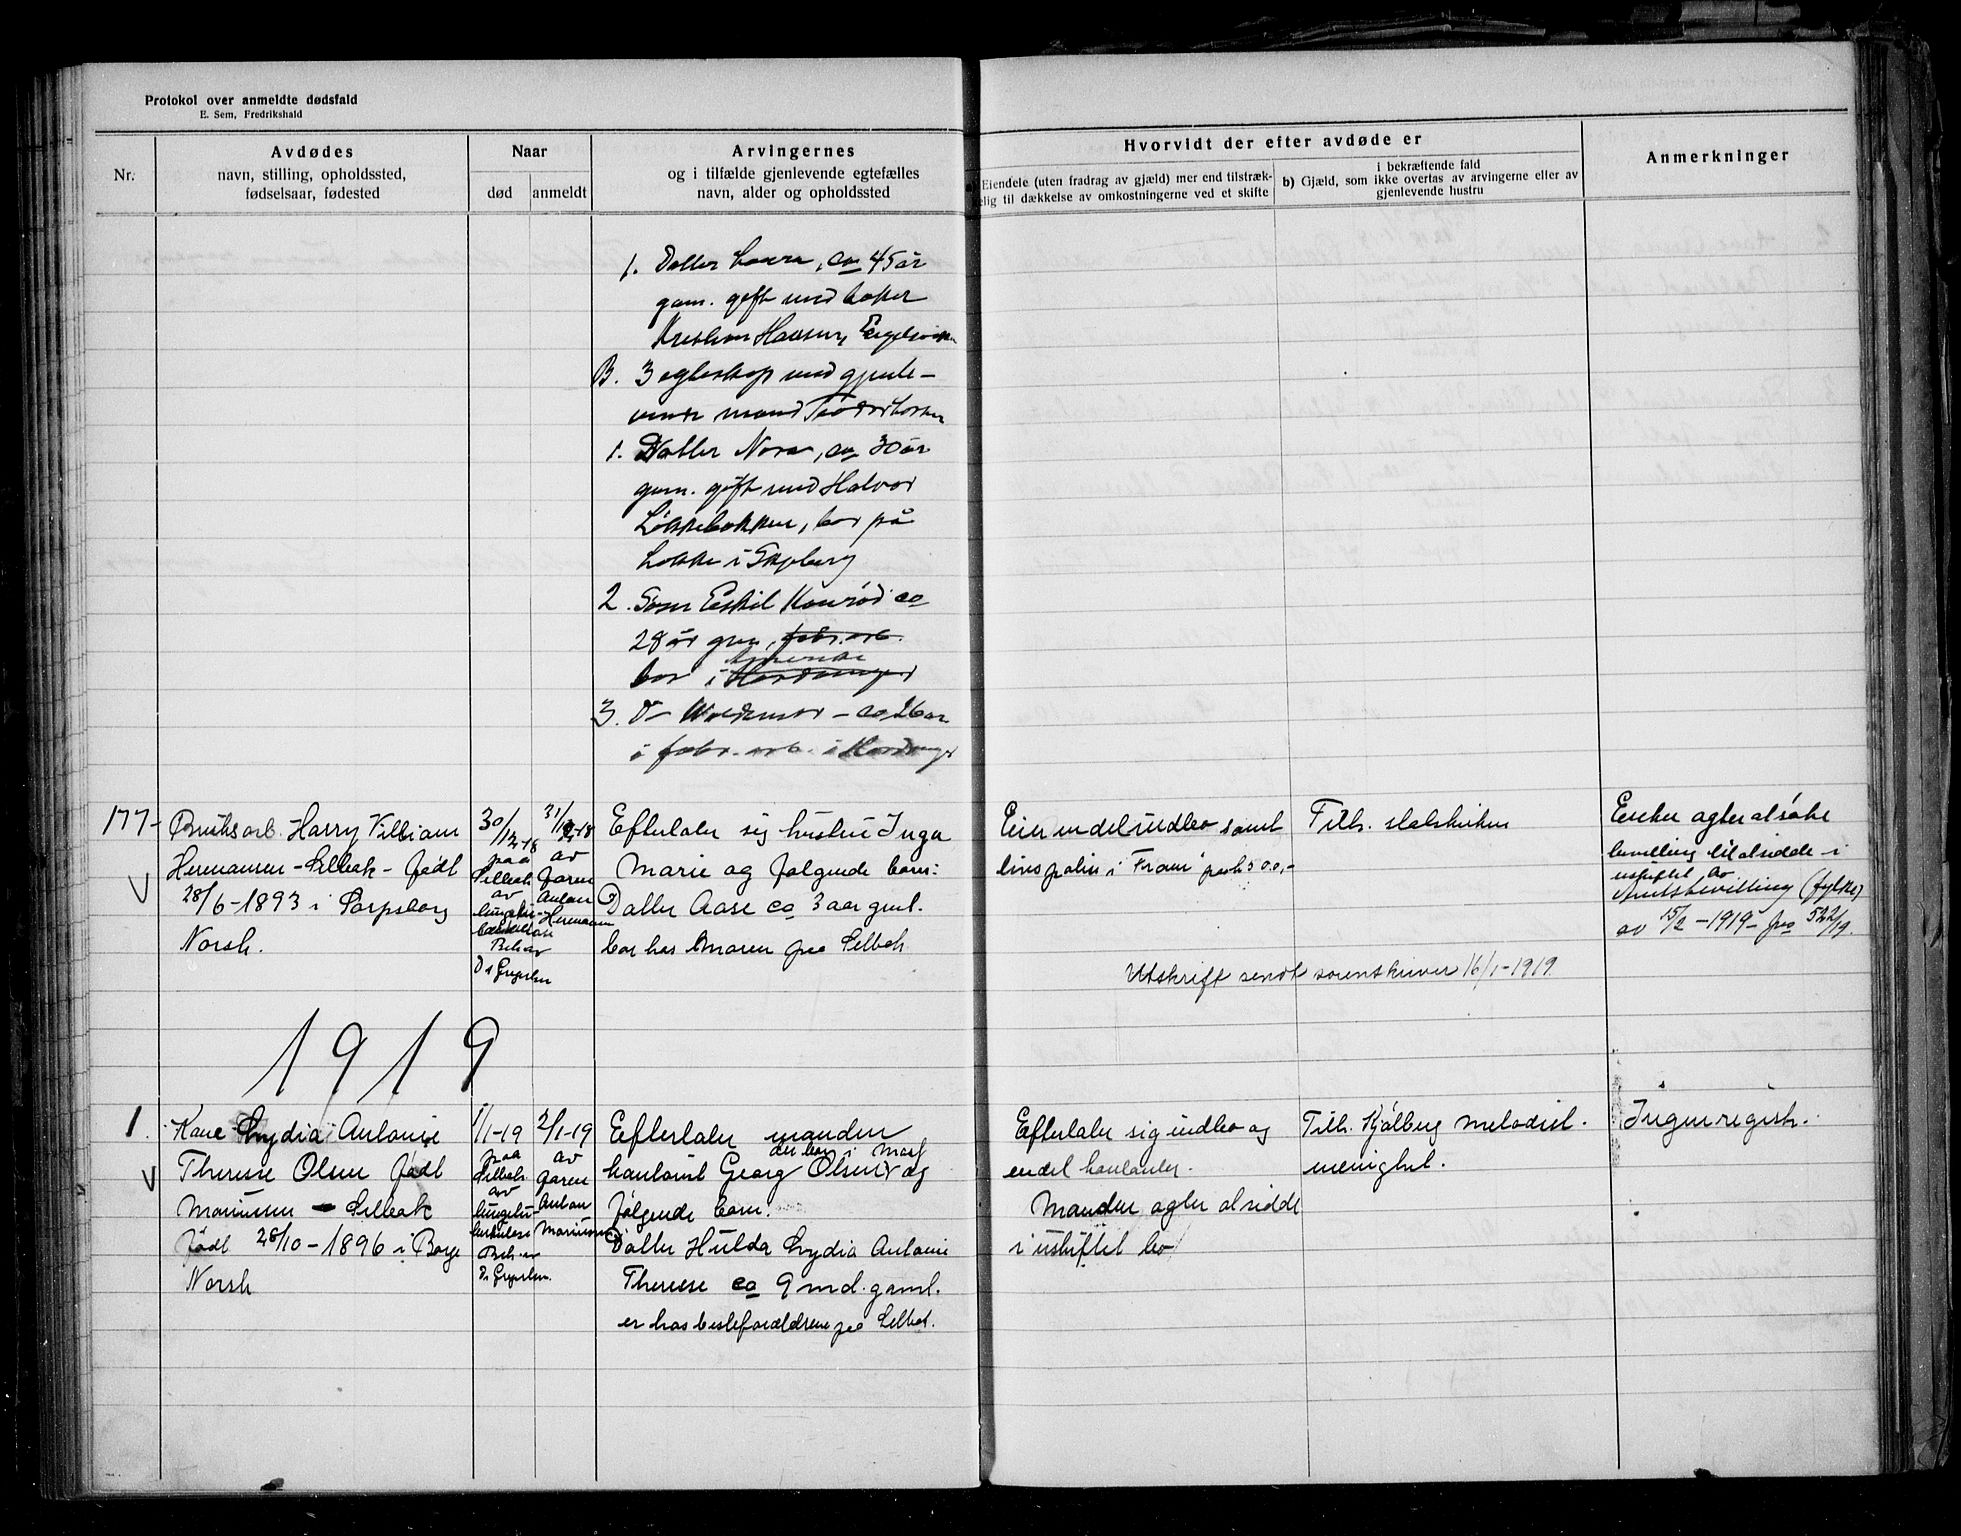 Protokol over anmeldte dødsfald
E. Sem, Fredrikshald
Nr.
Avdødes
navn, stilling, opholdssted,
fødselsaar, fødested
Naar
død
anmeldt
Arvingernes
og i tilfælde gjenlevende egtefælles
navn, alder og opholdssted
Hvorvidt der efter avdøde er
Eiendele (uten fradrag av gjæld) mer end tilstræk-
elig til dækkelse av omkostningerne ved et skifte
i bekræftende fald
b) Gjæld, som ikke overtas av arvingerne eller av
gjenlevende hustru
Anmerkninger
1. Datter Laura, ca 45 år
gam. gift med baker
Kristian Hansen, Engelsviken
B. I egteskap med gjenle-
vende mand
1. Datter Nora, ca 30 år
gam. gift med Halvor
Løkkebakken, bor på
Løkke i Skjeberg
2. Søn Eskil Konrød ca
28 år gm. fabr. arb.
Amerika
bor i Hardanger
3. D- Waldemar - ca 26 år
fabr. arb. i Hardanger
177-
Bruksarb. Harry Villiam
Hermansen - Selbak - født
28/6-1893 i Sarpsborg
Norsk.
30/12-18
paa
Selbak
av
Beh. av
Dr Gregersen
31/12-18
av
faren
Anton
Hermansen
Efterlater sig hustru Inga
Marie og følgende barn:
Datter Aase ca 3 aar gml.
bor hos moren paa Selbak
Eier endel indbo samt
livspolise i "Fram" paa kr 500,-
Tilh. statskirken
Enken agter at søke
bevilling til at sidde i
uskiftet bo
Amtsbevilling (fylke)
av 15/2-1919- jno 522/19.
Utskrift sendt sorenskriver 16/1-1919
1919
1.
Kone Lydia Antonie
Therese Olsen født
Mariussen - Selbak
født 28/10-1896 i Borge
Norsk
1/1-19
paa
Selbak
av
lungetu-
berkulose
Beh. av
Dr Gregersen.
2/1-19
av
faren
Anton
Mariussen
Efterlater manden
der bor i Moss
kontorist Georg Olsen og
følgende barn:
Datter Hulda Lydia Antonie
Therese ca 9 md. gaml.
er hos besteforældrene paa Selbak.
Efterlater sig indbo og
endel kontanter.
Manden agter at sidde
i uskiftet bo
Tilh. Kjølberg metodist-
menighet.
Ingen registr.